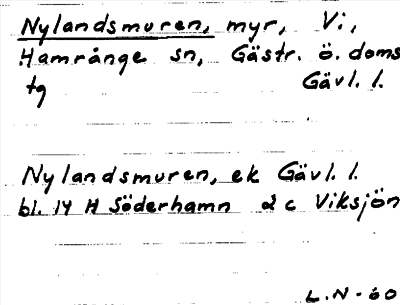 Nylandsmuren, myr, Vi,
Hamrånge sn, Gästr. ö. doms
tg Gävl. l.
Nylandsmuren, ek Gävl. l.
bl. 14 H Söderhamn 2 c Viksjön
L.N-60